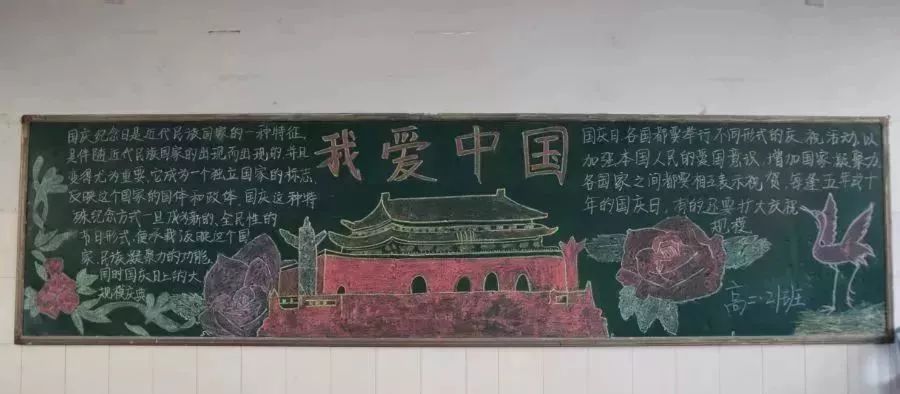 国庆纪念日是近代民族国家的一种特征,
是伴随近代民族国家的出现而出现的,并且
变得尤为重要,它成为一个独立国家的标志,
反映这个国家的国体和政体.国庆这种特
殊纪念方式一旦成为新的、全民性的
节日形式,便承载反映这个国
家、民族凝聚力的功能,
同时国庆日上的大
规模庆典
我爱中国
国庆日,各国都要举行不同形式的庆祝活动,以
加强本国人民的爱国意识,增加国家凝聚力,
各国家之间都要相互表示祝贺,每逢五年或十
年的国庆日,有的还要扩大庆祝
规模
高二·21班